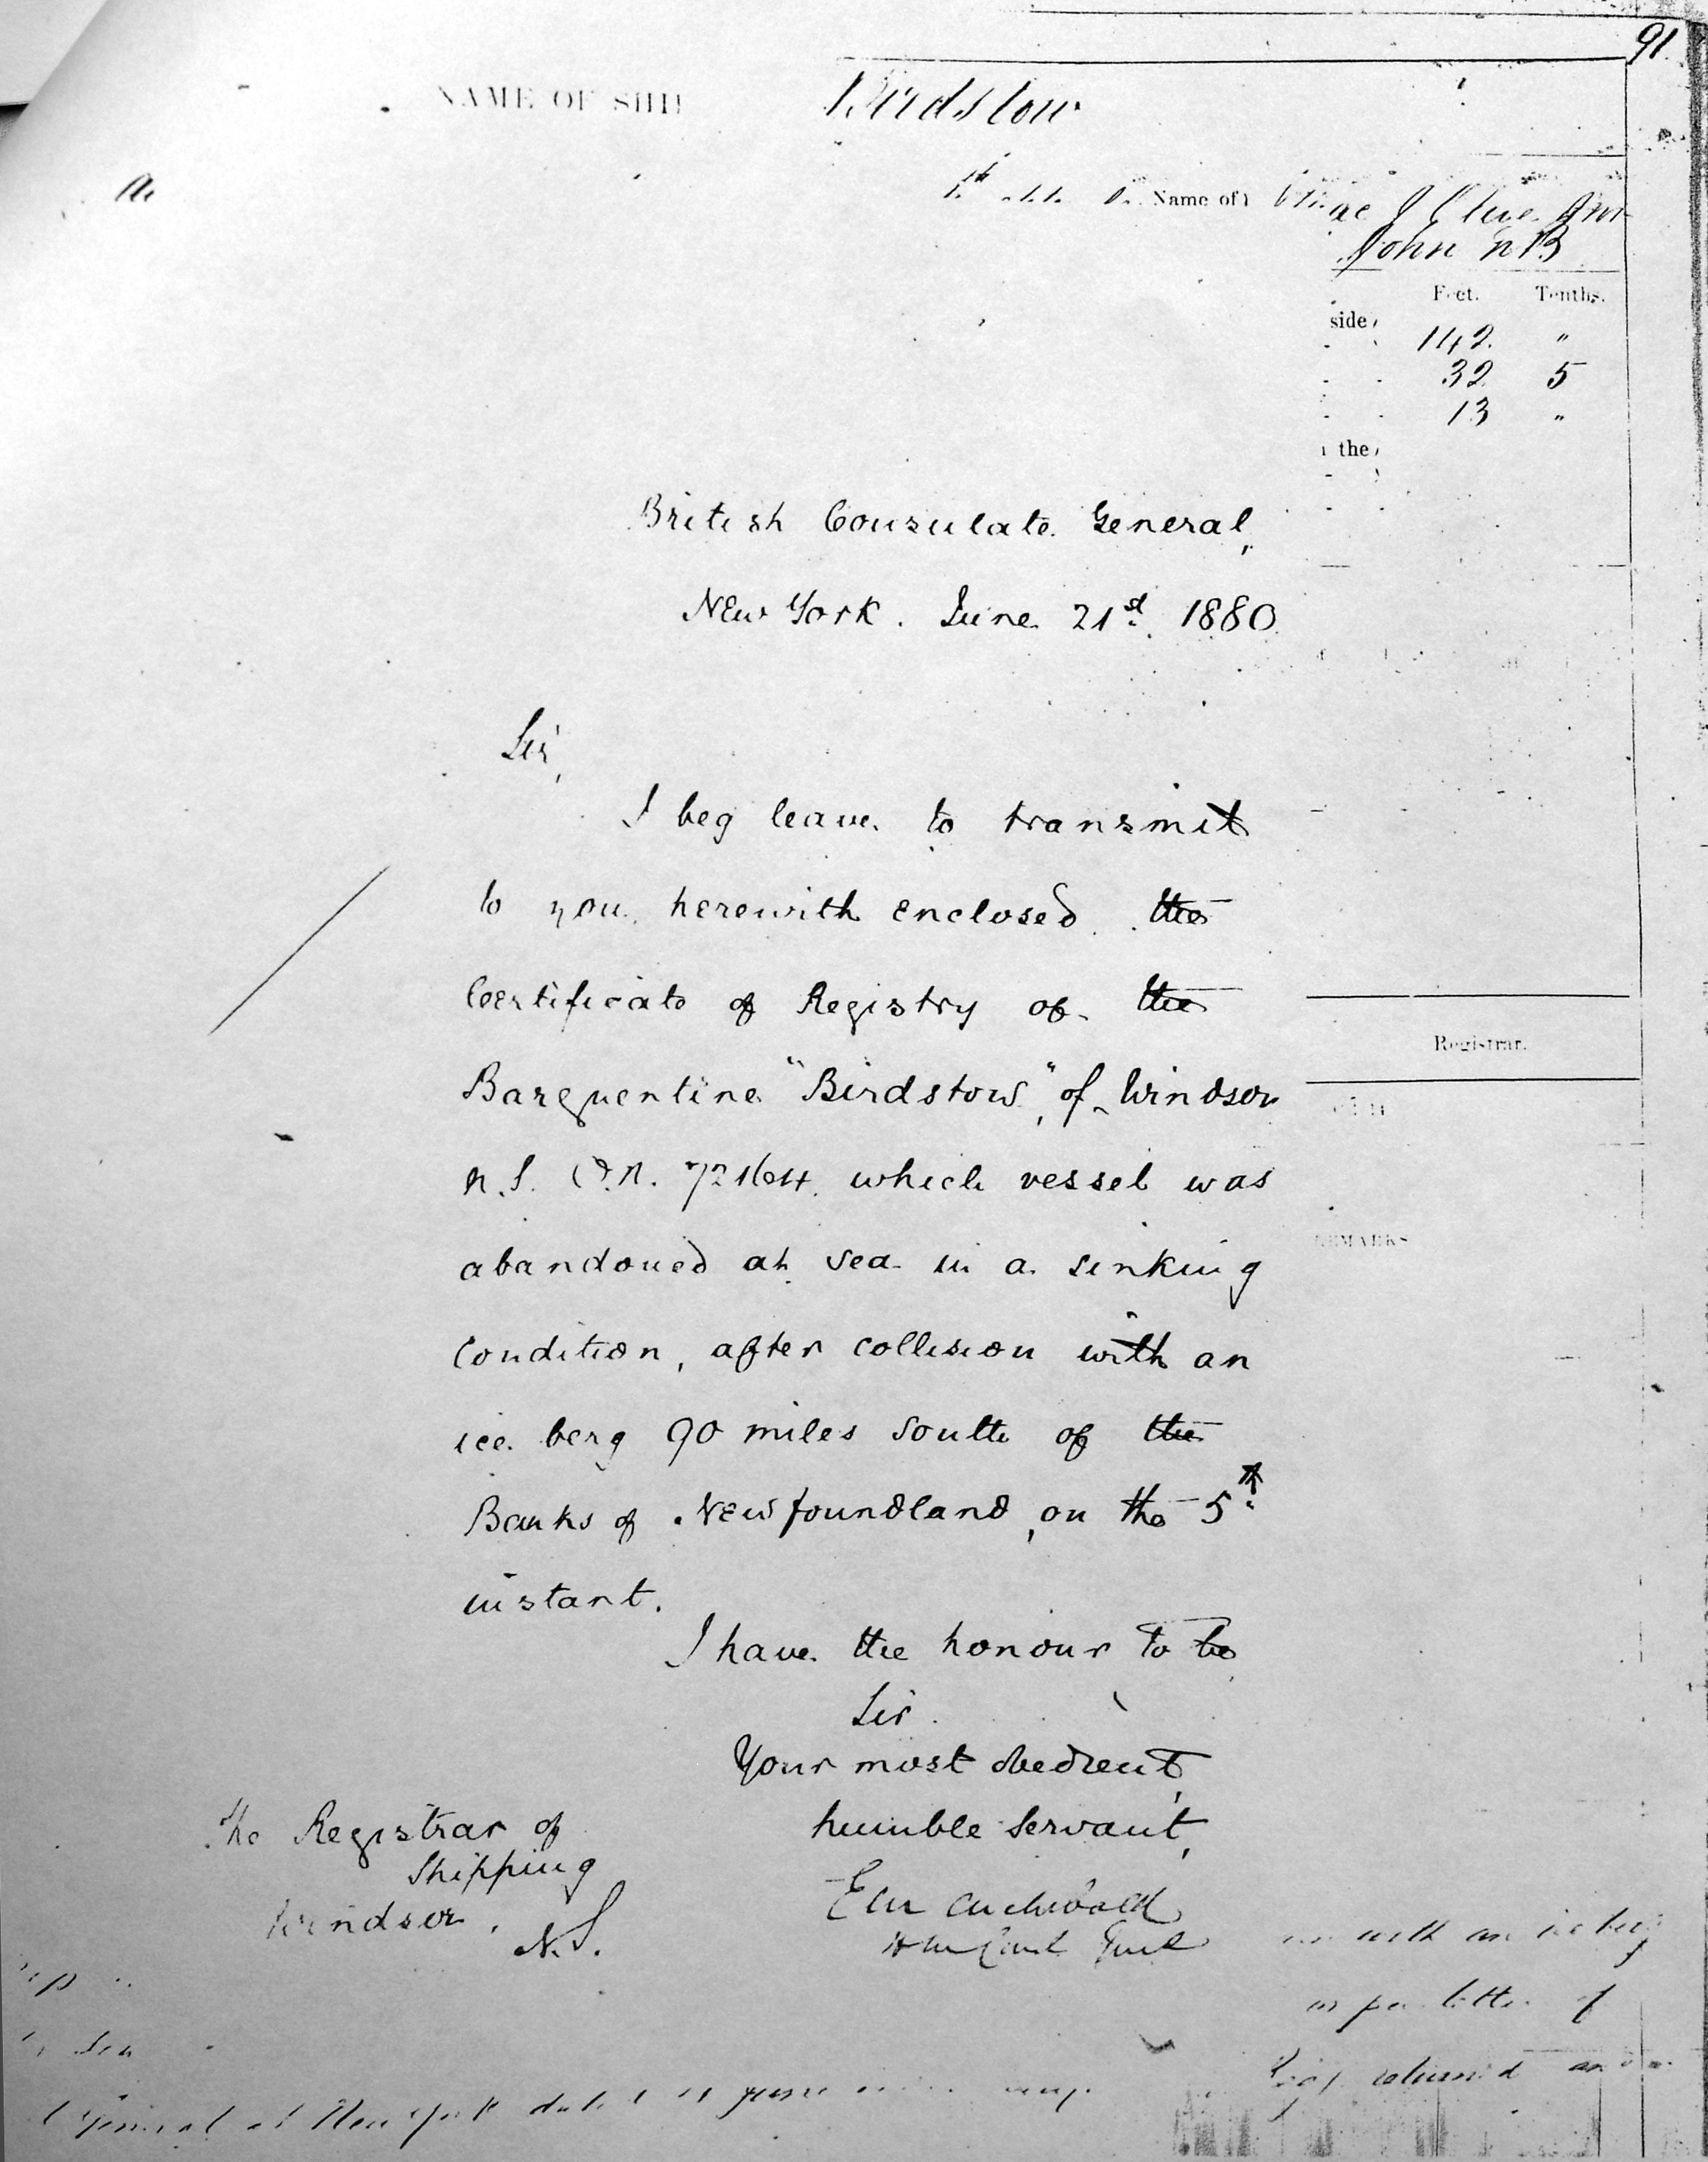 91.
NAME OF SHIP
Birdstow
Name of
John NB
Feet. Tenths.
side
142. "
32 5
13 "
the
British Consulate General,
New York. June 21st. 1880.
Sir,
I beg leave to transmit
to you herewith enclosed the
Certificate of Registry of the
Barquentine "Birdstow", of Windsor
N.S. O.N. 72164. which vessel was
abandoned at sea in a sinking
Condition, after collision with an
ice berg 90 miles South of the
Banks of Newfoundland, on the 5th.
instant.
I have the honour to be
Sir.
Your most obedient,
humble Servant,
EM Archibald
HM Consl Genl
The Registrar of
Shipping
Windsor.
N.S.
Registrar.
REMARKS
with an iceberg
as per letter of
General at New York
returned and